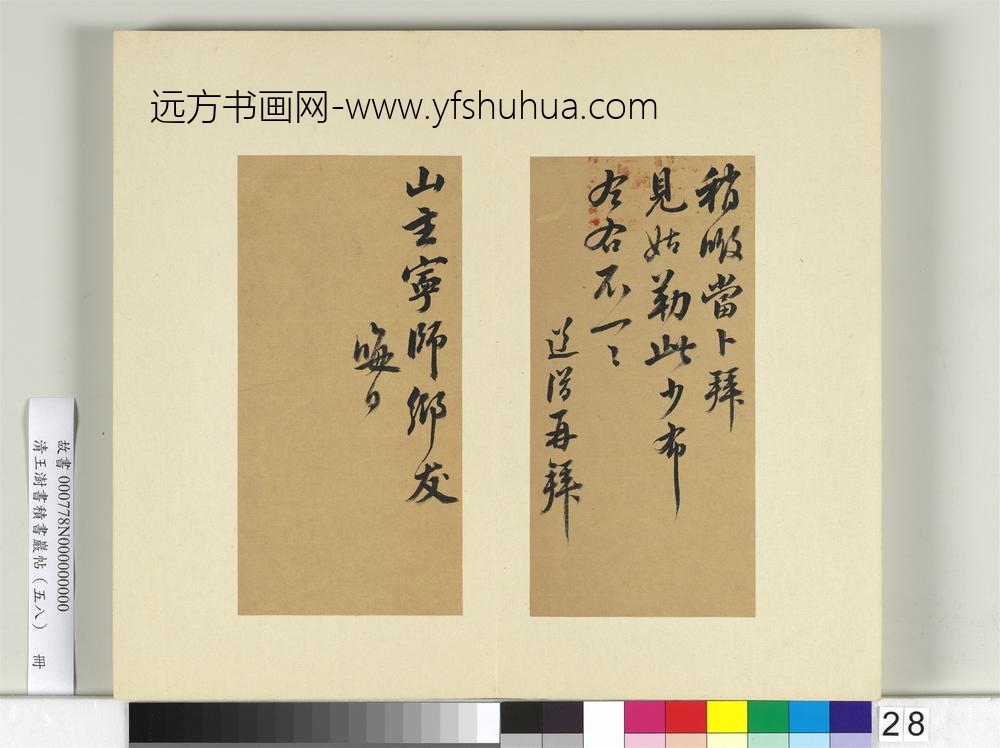 远方书画网-www.yfshuhua.com
稍暇當卜拜
見姑勒此少布
左右不一〻
道潛再拜
山主寧師鄉友
晦日
故書 000778N000000000
清王澍書積書巖帖（五八） 冊
28